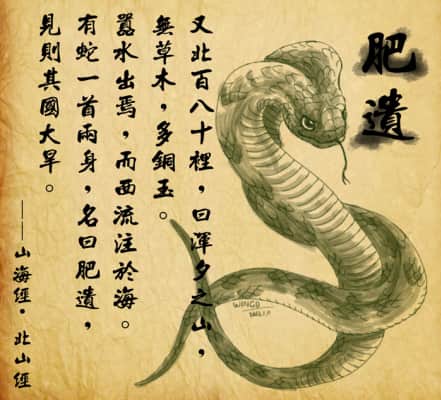 肥遺
又北百八十裡，曰渾夕之山，
無草木，多銅玉。
囂水出焉，而西流注於海。
有蛇一首兩身，名曰肥遺，
見則其國大旱。
——山海經·北山經